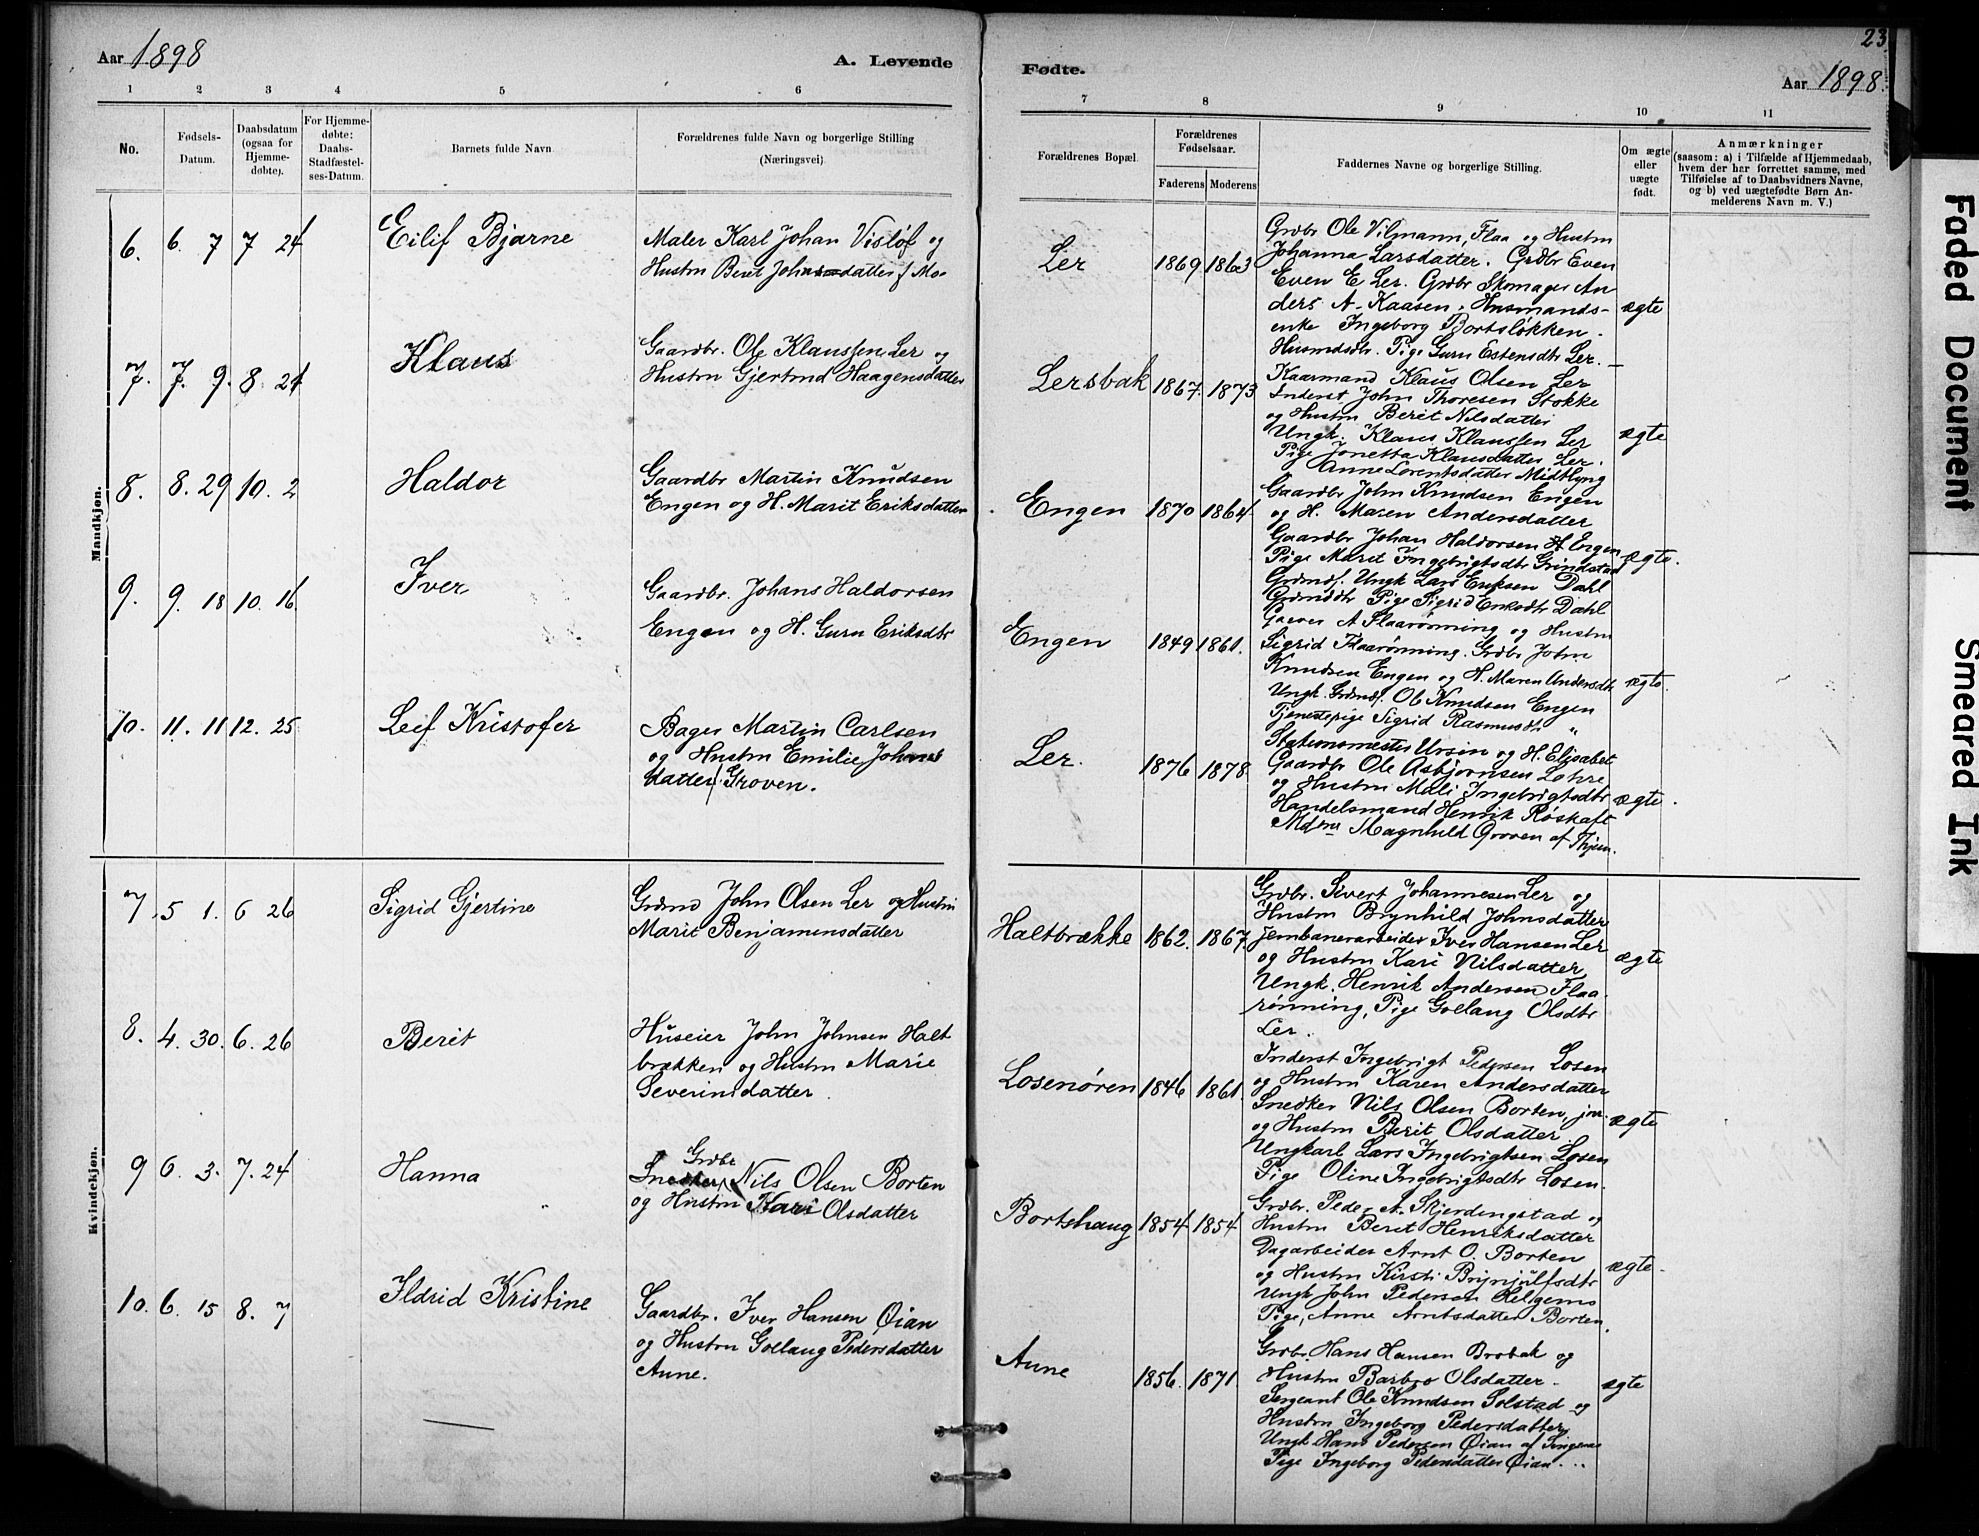 23
Aar 1898
A. Levende
Fødte.
Aar 1898.
1 2 3 4 5 6
7 8 9 10 11
No.
Fødsels-
Datum.
Daabsdatum
(ogsaa for
Hjemme-
døbte).
For Hjemme-
døbte:
Daabs-
Stadfæstel-
ses-Datum.
Barnets fulde Navn
Forældrenes fulde Navn og borgerlige Stilling
(Næringsvei)
Forældrenes Bopæl.
Forældrenes
Fødselsaar.
Faderens Moderens
Faddernes Navne og borgerlige Stilling.
Om ægte
eller
uægte
født.
Anmærkninger
(saasom: a) i Tilfælde af Hjemmedaab,
hvem der har forrettet samme, med
Tilføielse af to Daabsvidners Navne,
og b) ved uægtefødte Børn An-
melderens Navn m. V.)
Mandkjøn.
6. 6. 7 7 24
Eilif Bjarne
Maler Karl Johan Visløf og
Hustru Beret Johnsdatter f Mo-
Ler
1869 1863
Grdbr Ole Vilmann, Flaa og Hustru
Johanna Larsdatter. Grdbr Even
Even E Ler. Grdbr Skomager An
ders A. Kaasen, Husmands-
enke Ingeborg Bortsløkken.
Husmdsdtr. Pige Guru Estensdtr Ler.
ægte
7. 7. 9. 8 24
Klaus
Gaardbr. Ole Klaussen Ler og
Hustru Gjertrud Haagensdatter
Lersbak
1867. 1873
Kaarmand Klaus Olsen Ler
Inderst John Thoresen Stokke
og Hustru Berit Nilsdatter
Ungk. Klaus Klaussen Ler
Pige Jonetta Klausdatter Ler.
Anne Lorentsdatter Midtlyng
ægte
8. 8. 29 10. 2
Haldor
Gaardbr Martin Knudsen
Engen og H. Marit Eriksdatter
Engen
1870 1864
Gaardbr John Knudsen Engen
og H. Maren Andersdatter
Gaardbr Johan Haldorsen Engen
Pige Marit Ingebrigtsdtr Grindstad
Grdmds. Ungk Lars Eriksen Dahl
Grdmddtr Pige Sigrid Eriksdtr Dahl
ægte.
9. 9. 18 10. 16
Iver
Gaardbr. Johans Haldorsen
Engen og H. Guru Eriksdtr
Engen
1849 1861.
A Flaarønning og Hustru
Sigrid Flaarønning. Grdbr John
Knudsen Engen og H. Maren Andersdtr
Ungk. Grdmds. Ole Knudsen Engen
Tjenestepige Sigrid Rasmusdtr "
ægte.
10. 11. 11 12. 25
Leif Kristofer
Bager Martin Carlsen
og Hustru Emilie Johans
datter Groven.
Ler.
1876 1878
Stationsmester Ursin og H. Elisabet
Gaardbr Ole Asbjørnsen Lohre
og Hustru Mali Ingebrigtsdtr
Handelsmand Henrik Røskaft
Magnhild Groven af Thjem.
ægte.
Kvindekjøn.
7 5 1. 6 26
Sigrid Gjertine
Grdmd John Olsen Ler og Hustru
Marit Benjaminsdatter
Haltbrække
1862. 1867.
Grdbr. Sivert Johannesen Ler og
Hustru Brynhild Johnsdatter
Jernbanerarbeider Iver Hansen Ler
og Hustru Kari Nilsdatter
Ungk. Henrik Andersen Flaa
rønning, Pige Gollaug Olsdtr
Ler.
ægte
8. 4. 30. 6. 26
Berit
Huseier John Johnsen Halt
brækken og Hustru Marie
Severinsdatter.
Losenøren
1846 1861.
Inderst Ingebrigt Pedersen Losen
og Hustru Karen Andersdatter
Snedker Nils Olsen Borten, jnr.
og Hustru Berit Olsdatter
Ungkarl Lars Ingebrigtsen Losen
Pige Oline Ingebrigtsdtr Losen.
ægte
9 6. 3. 7. 24
Hanna
Grdbr
Snedker Nils Olsen Borten
og Hustru Kari Olsdatter
Bortshaug
1854. 1854.
Grdbr. Peder A. Skjerdingstad og
Hustru Beret Henriksdatter
Dagarbeider Arnt O. Borten
og Hustru Kirsti Brynjulfsdtr
Ungk John Pedersen Helgemo
Pige, Anne Arntsdatter Borten.
ægte.
10. 6. 15 8. 7
Ildrid Kristine
Gaardbr. Iver Hansen Øian
og Hustru Gollaug Pedersdatter
Aune.
Aune
1856. 1871
Grdbr. Hans Hansen Brobak og
Hustru Barbro Olsdatter.
Sergeant Ole Knudsen Solstad og
Hustru Ingeborg Pedersdatter,
Ungk Hans Pedersen Øian af Singsaas
Pige Ingeborg Pedersdatter Øian.
ægte
Faded Document
Smeared Ink